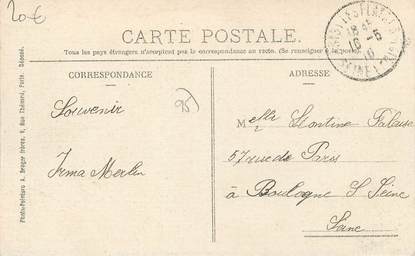 20€
CARTE POSTALE.
Tous les pays étrangers n'acceptent pas la correspondance au recto. (Se renseigner à la poste).
CORRESPONDANCE
ADRESSE
Souvenir
95
Irma Merlin
Melle Léontine Falaise
57 rue de Paris
à Boulogne S Seine
Seine
Photo-Peinture A. Breger frères, 9, Rue Thénard, Paris. Déposé.
18
16 -6
10